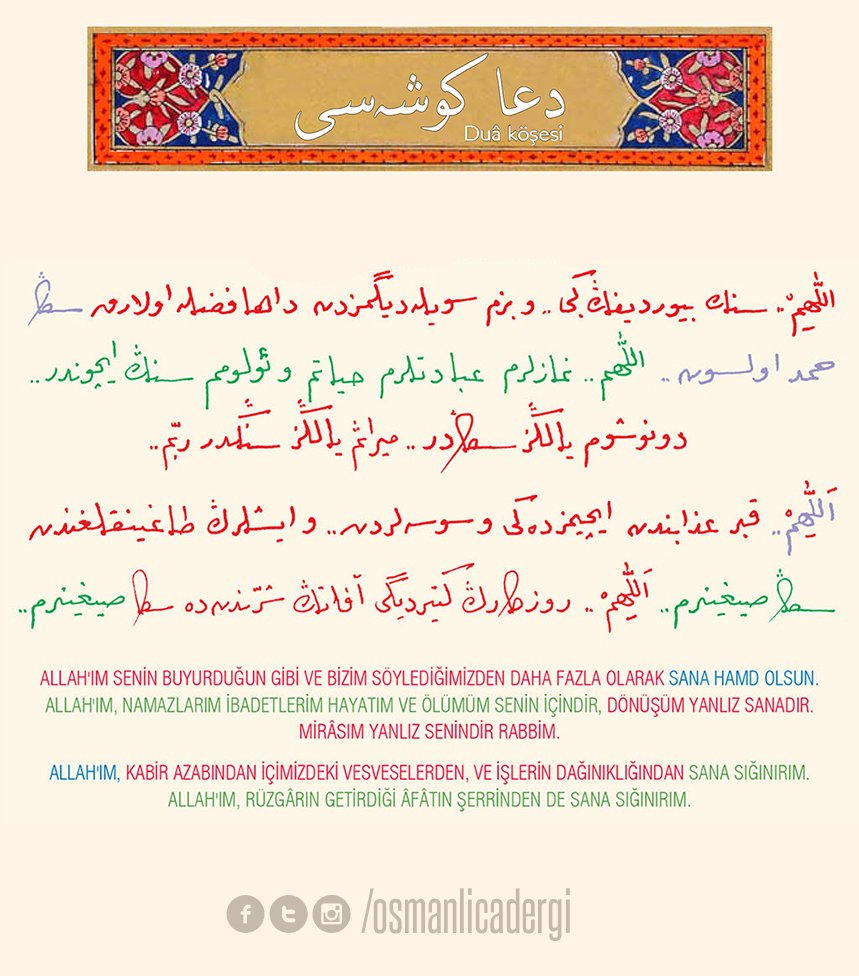 دعا كوشه‌سی
Duâ köşesi
اللّٰهم .. سنڭ بیوردیغڭ كبی .. و بزم سویله‌دیگمزدن داها فضله اولارق سڭا
حمد اولسون .. اللّٰهم .. نمازلرم عبادتلرم حیاتم و ئولومم سنڭ ایچوندر ..
دونوشوم یاڭلڭز سڭادر .. میراثم یاڭلڭز سنڭدر ربّم ..
اَللّٰهمْ .. قبر عذابندن ایچیمزده‌كی وسوسه‌لردن .. و ایشلرڭ طاغینقلغندن
سڭا صیغینرم .. اَللّٰهمْ .. روزگارڭ كتیردیگی آفاتڭ شرّندن ده سڭا صیغینرم ..
ALLAH'IM SENİN BUYURDUĞUN GİBİ VE BİZİM SÖYLEDİĞİMİZDEN DAHA FAZLA OLARAK SANA HAMD OLSUN.
ALLAH'IM, NAMAZLARIM İBADETLERİM HAYATIM VE ÖLÜMÜM SENİN İÇİNDİR, DÖNÜŞÜM YANLIZ SANADIR.
MİRÂSIM YANLIZ SENİNDİR RABBİM.
ALLAH'IM, KABİR AZABINDAN İÇİMİZDEKİ VESVESELERDEN, VE İŞLERİN DAĞINIKLIĞINDAN SANA SIĞINIRIM.
ALLAH'IM, RÜZGÂRIN GETİRDİĞİ ÂFÂTIN ŞERRİNDEN DE SANA SIĞINIRIM.
/osmanlicadergi